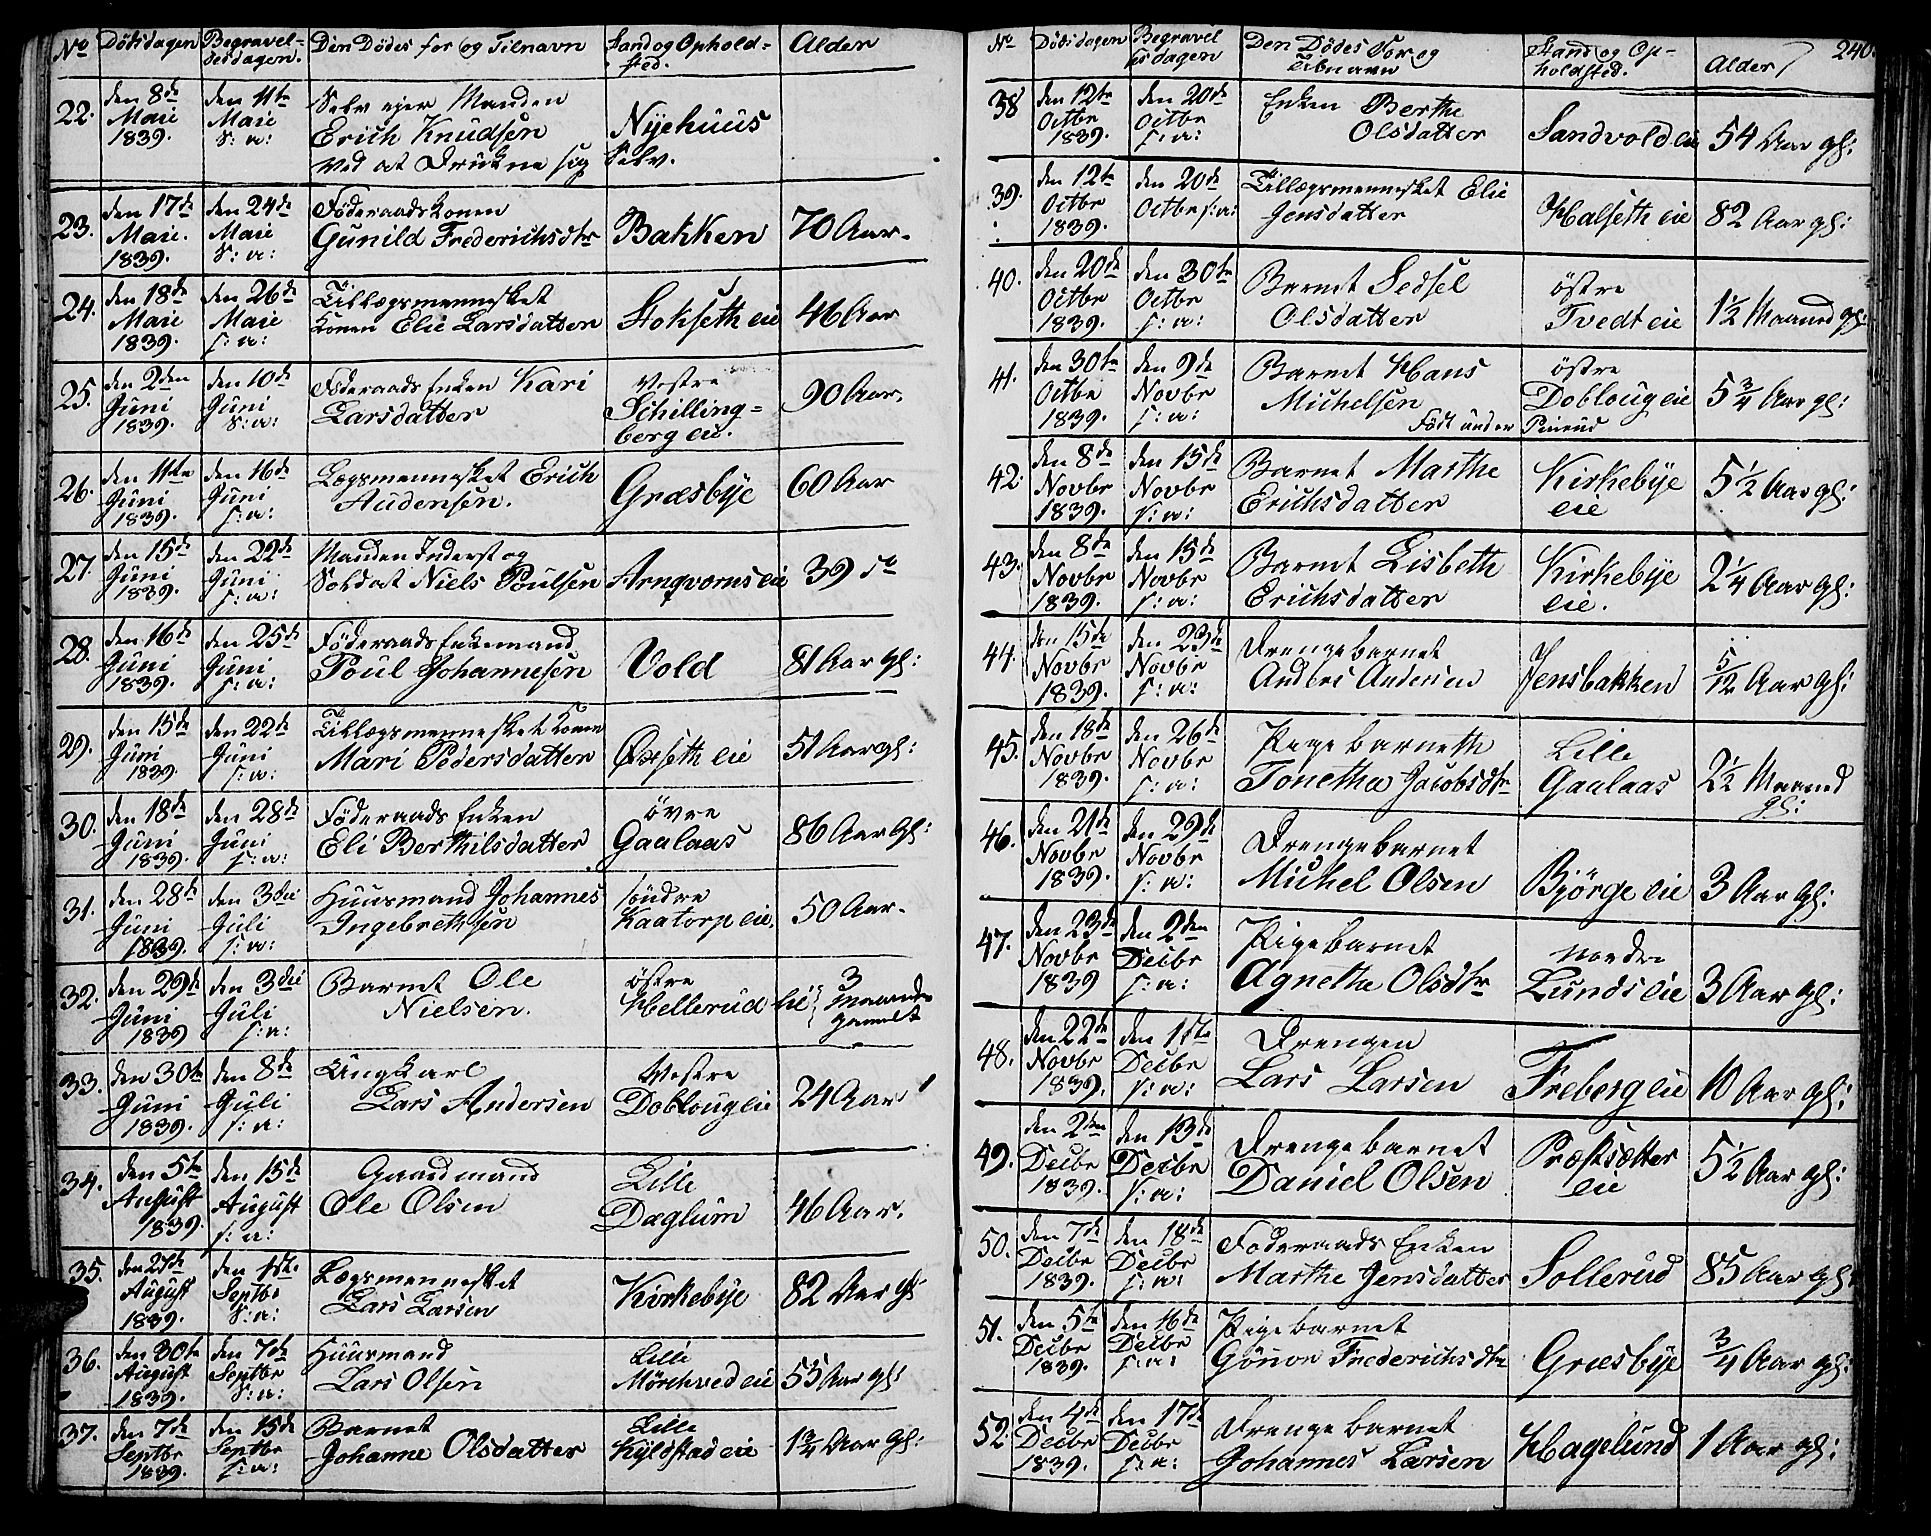 No Dödsdagen Begravel= Den Dödes for og Tilnavn Stand og Ophold= Alder
sesdagen. sted.
22. den 8de den 11te Selv ejer Manden
Maie Maie Erich Knudsen Nyehuus
1839. S: a: ved at Drukne sig Selv.
23. den 17de den 24de Föderaadskonen
Maie. Maie Gunild Frederichsdtr Bakken 70 Aar.
1839. S: a:
24. den 18de den 26de Tillægsmennesket
Maie Maie Konen Elie Larsdatter Stokseth eie 46 Aar
1839. s: a:
25. den 2den den 10de Föderaads Enken Kari Vestre
Juni Juni Larsdatter Schilling= 90 Aar.
1839. S: a: berg eie.
26. den 11te den 16de Lægsmennesket Erich
Juni Juni Audensen. Græsbye 60 Aar
1839. s: a:
27. den 15de den 22de Manden Inderst og
Juni Juni Soldat Niels Poulsen Arnqværns eie 39 do
1839. s: a:
28. den 16de den 25de Föderaads Enkemand
Juni Juni Poul Johannesen Vold 81 Aar gl:
1839. s: a:
29. den 15de den 22de Tillægsmennesket Konen
Juni Juni Mari Pedersdatter Öxseth eie 51 Aar gl:
1839. s: a:
30. den 18de den 28de Föderaads Enken övre
Juni Juni Eli Berthilsdatter Gaalaas 86 Aar gl:
1839. s: a:
31. den 28de den 3die Huusmand Johannes söndre
Juni Juli Ingebrethsen Kaatorp eie. 50 Aar.
1839. s: a:
32. den 29de den 3die Barnet Ole östre 3
Juni Juli Nielsen. Hellerud eie Maaneder
1839 s: a: gammelt
33. den 30te den 8de Ungkarl Vestre
Juni Juli Lars Andersen Dobloug eie 24 Aar
1839. s: a:
34. den 5te den 15de Gaardmand Lille
August August Ole Olsen Dæglum 46 Aar.
1839. s: a:
35. den 27de den 1ste Lægsmennesket
August Septbr Lars Larsen Kirkebye 82 Aar gl
1839. S: a:
36. den 30te den 7de Huusmand Lille
August Septbr Lars Olsen Mörchved eie 55 Aar gl:
1839. S: a:
37. den 7de den 15de Barnet Lille
Septbr Septbr Johanne Olsdatter Kyldstad eie 1 3/4 Aar gl:
1839. s: a:
No Dödsdagen Begravel Den Dödes For og Stand og Op= Alder 240.
lsesdagen Tilnavn holdsted.
38 den 12te den 20de Enken Berthe
Octbr Octbr Olsdatter Sandvold eie 54 Aar gl:
1839. s: a:
39. den 12te den 20de Tillægsmennesket Elie
Octbr Octbr s: a: Jensdatter Halseth eie 82 Aar gl:
1839.
40. den 20de den 30te Barnet Sedsel östre
Octbr Octbr Olsdatter Tvedt eie 1 1/2 Maaned gl:
1839. s: a:
41. den 30te den 9de Barnet Hans östre
Octbr Novbr Michelsen Dobloug eie 5 3/4 Aar gl:
1839. s: a: Födt under
42. den 8de den 15de Barnet Marthe Kirkebye
Novbr Novbr Erichsdatter eie 5 1/2 Aar gl:
1839. s: a:
43. den 8de den 15de Barnet Lisbeth Kirkebye
Novbr Novbr Erichsdatter eie. 2 1/4 Aar gl:
1839. s: a:
44. den 15de den 23de Drengebarnet
Novbr Novbr Andres Andersen Jensbakken 5/12 Aar gl:
1839. s: a:
45. den 18de den 26de Pigebarneth Lille
Novbr Novbr Tonetha Jacobsdtr Gaalaas 2 1/2 Maaned
1839. s: a: gl:
46. den 21de den 29de Drengebarnet
Novbr Novbr Michel Olsen Björge eie 3 Aar gl:
1839. s: a:
47. den 23de den 2den Pigebarnet nordre
Novbr Decbr Agnetha Olsdtr Lunds eie 3 Aar gl:
1839 s: a:
48. den 22de den 1ste Drengen
Novbr Decbr Lars Larsen Freberg eie 10 Aar gl:
1839. s: a:
49. den 2den den 13de Drengebarnet Præstsætter
Decbr Decbr Daniel Olsen eie 5 1/2 Aar gl:
1839. s: a:
50. den 7de den 18de Foderaads Enken
Decbr Decbr Marthe Jensdatter Sollerud 85 Aar gl:
1839. s: a:
51. den 5te den 16de Pigebarnet
Decbr Decbr Gönvor Frederichsdtr Græsbye 3/4 Aar gl:
1839. s: a:
52. den 4de den 17de Drengebarnet
Decbr Decbr Johannes Larsen Hagelund 1 Aar gl:
1839. s: a: